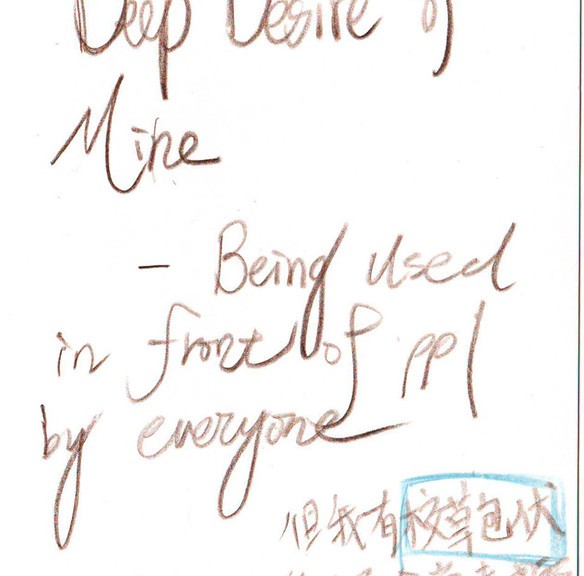 Deep Desire of
Mine
- Being used
in front of ppl
by everyone
但我有校草包伏